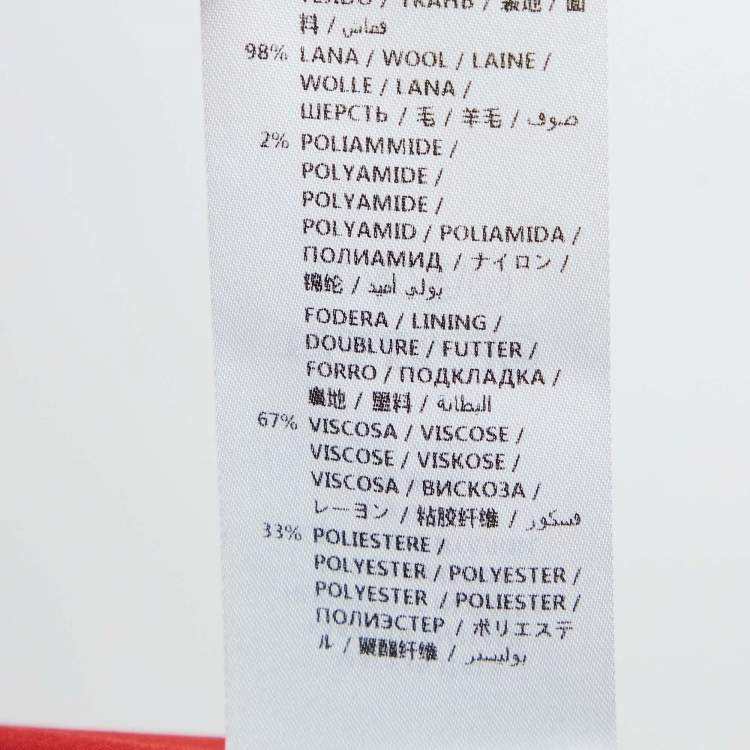 TEJIDO / ТКАНЬ / 裏地 / 面
料 / قماش
98% LANA / WOOL / LAINE /
WOLLE / LANA /
ШЕРСТЬ / 毛 / 羊毛 / صوف
2% POLIAMMIDE /
POLYAMIDE /
POLYAMIDE /
POLYAMID / POLIAMIDA /
ПОЛИАМИД / ナイロン /
锦纶 / بولي أميد
FODERA / LINING /
DOUBLURE / FUTTER /
FORRO / ПОДКЛАДКА /
裏地 / 里料 / البطانة
67% VISCOSA / VISCOSE /
VISCOSE / VISKOSE /
VISCOSA / ВИСКОЗА /
レーヨン / 粘胶纤维 / فسكور
33% POLIESTERE /
POLYESTER / POLYESTER /
POLYESTER / POLIESTER /
ПОЛИЭСТЕР / ポリエステ
ル / 聚酯纤维 / بوليستر